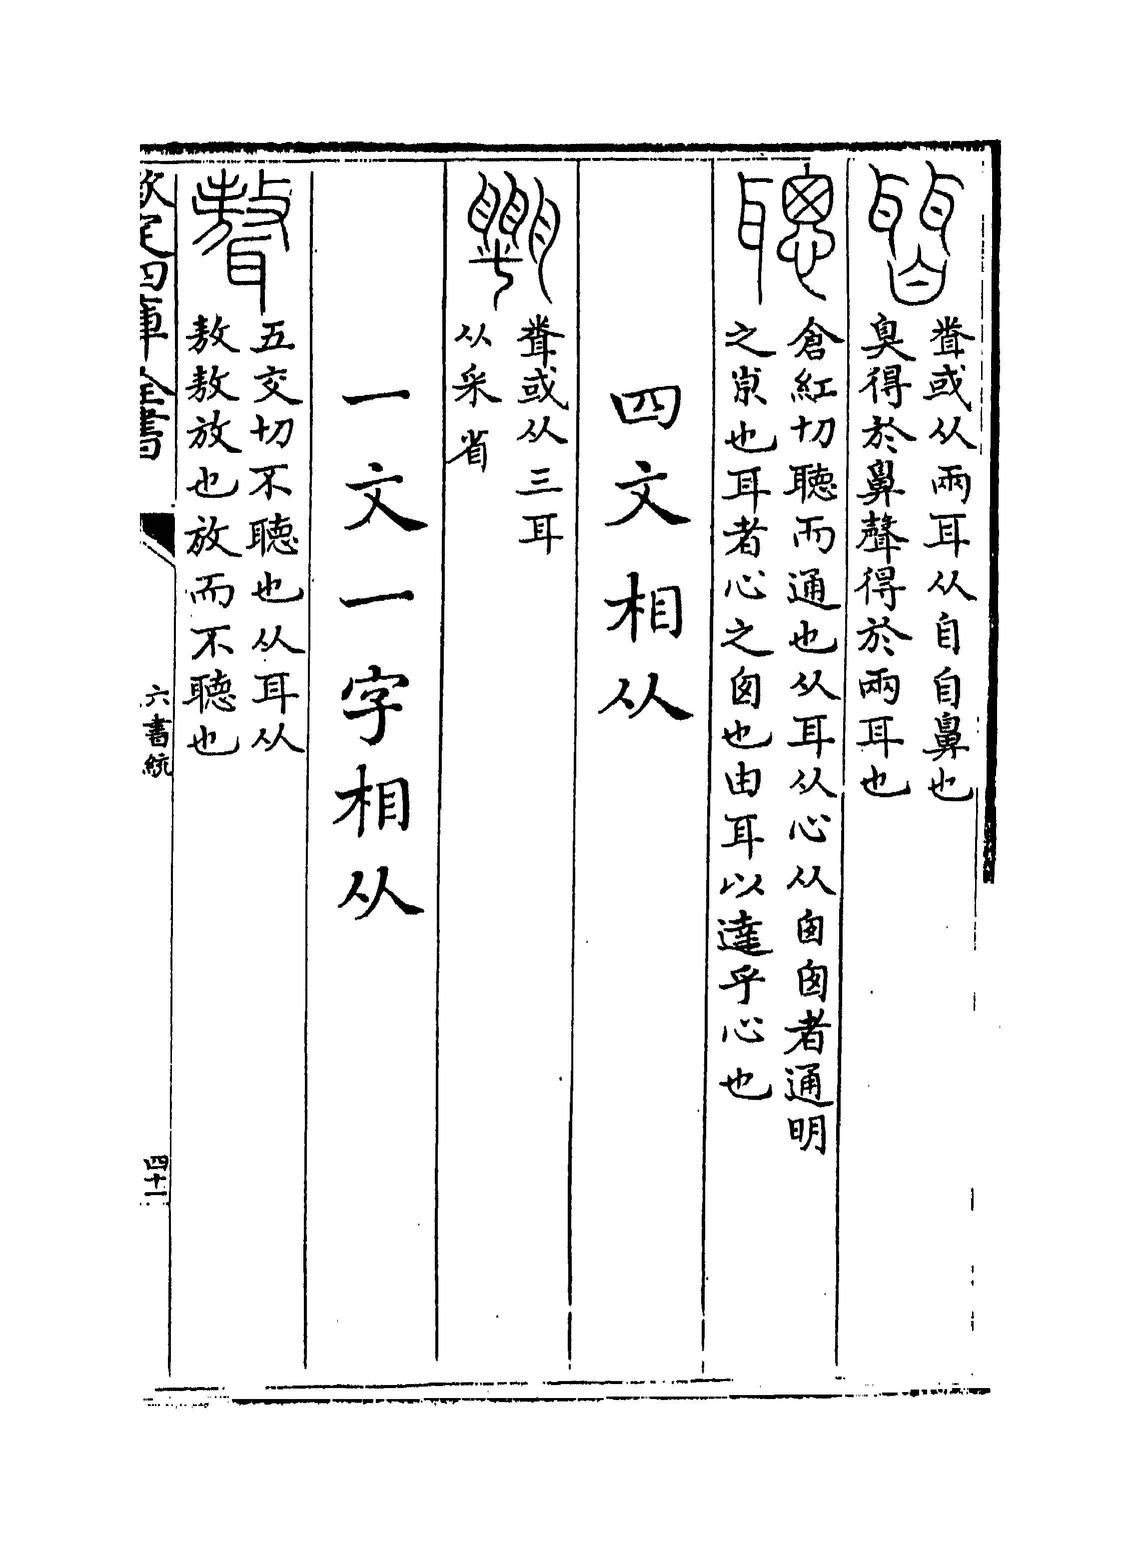 或从兩耳从自自鼻也
臭得於鼻聲得於兩耳也
聰
倉紅切聽而通也从耳从心从囪囪者通明
之也耳者心之囪也由耳以達乎心也
四文相从
或从三耳
从采省
一文一字相从
聱
五交切不聽也从耳从
敖敖放也放而不聽也
欽定四庫全書
六書統
四十一